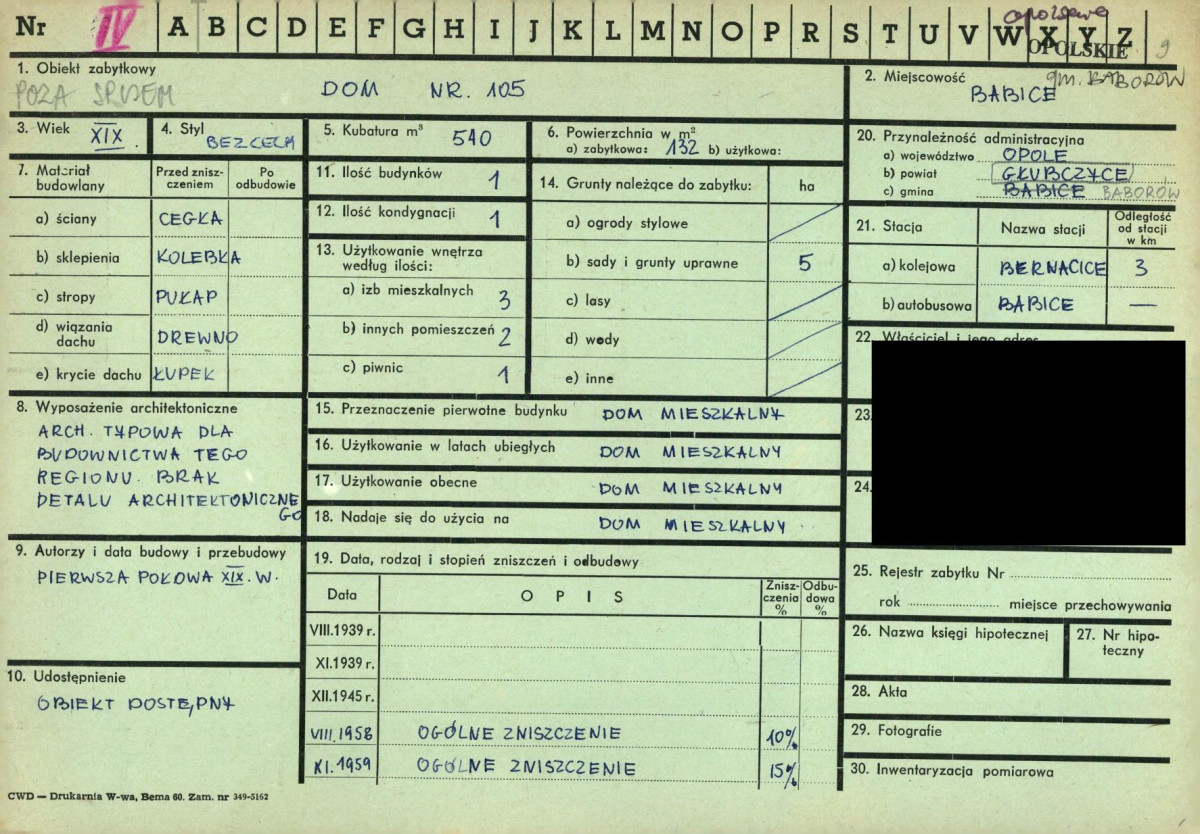 Nr IV A B C D E F G H I J K L M N O P R S T U V W X Y Z
opolskie
OPOLSKIE 9
1. Obiekt zabytkowy
POZA SPISEM
DOM NR. 105
2. Miejscowość
gm. BABORÓW
BABICE
3. Wiek XIX.
4. Styl BEZ CECH
5. Kubatura m³ 540
6. Powierzchnia w m²
a) zabytkowa: 132 b) użytkowa:
20. Przynależność administracyjna
a) województwo OPOLE
b) powiat GŁUBCZYCE
c) gmina BABICE BABORÓW
7. Materiał budowlany
Przed zniszczeniem
Po odbudowie
a) ściany CEGŁA
b) sklepienia KOLEBKA
c) stropy PUŁAP
d) wiązania dachu DREWNO
e) krycie dachu ŁUPEK
11. Ilość budynków 1
12. Ilość kondygnacji 1
13. Użytkowanie wnętrza
według ilości:
a) izb mieszkalnych 3
b) innych pomieszczeń 2
c) piwnic 1
14. Grunty należące do zabytku: ha
a) ogrody stylowe
b) sady i grunty uprawne 5
c) lasy
d) wody
e) inne
21. Stacja
Nazwa stacji
Odległość od stacji w km
a) kolejowa BERNACICE 3
b) autobusowa BABICE —
22. Właściciel i jego adres
23.
24.
8. Wyposażenie architektoniczne
ARCH. TYPOWA DLA
BUDOWNICTWA TEGO
REGIONU. BRAK
DETALU ARCHITEKTONICZNE
GO
15. Przeznaczenie pierwotne budynku DOM MIESZKALNY
16. Użytkowanie w latach ubiegłych DOM MIESZKALNY
17. Użytkowanie obecne DOM MIESZKALNY
18. Nadaje się do użycia na DOM MIESZKALNY
9. Autorzy i data budowy i przebudowy
PIERWSZA POŁOWA XIX. W.
10. Udostępnienie
OBIEKT DOSTĘPNY
19. Data, rodzaj i stopień zniszczeń i odbudowy
Data OPIS Zniszczenia % Odbudowa %
VIII.1939 r.
XI.1939 r.
XII.1945 r.
VIII.1958 OGÓLNE ZNISZCZENIE 10%
XI.1959 OGÓLNE ZNISZCZENIE 15%
25. Rejestr zabytku Nr
rok miejsce przechowywania
26. Nazwa księgi hipotecznej
27. Nr hipoteczny
28. Akta
29. Fotografie
30. Inwentaryzacja pomiarowa
CWD — Drukarnia W-wa, Bema 60. Zam. nr 349-5162